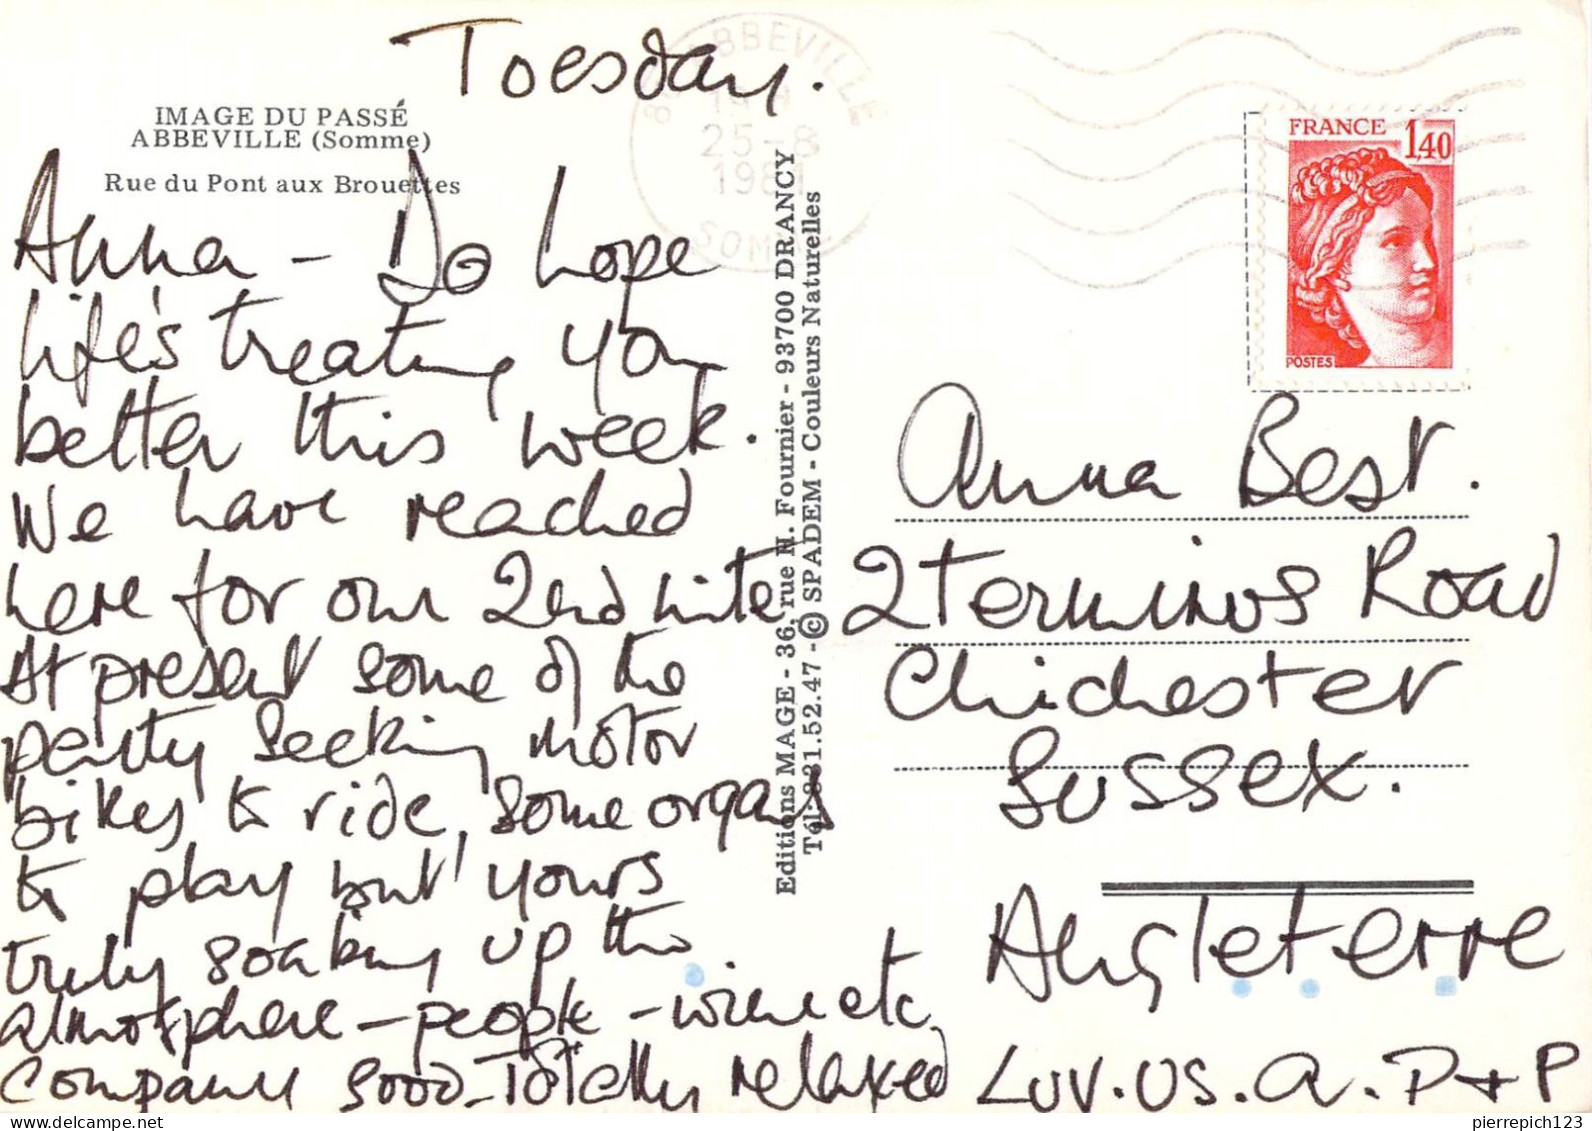 Tuesday.
IMAGE DU PASSÉ
ABBEVILLE (Somme)
Rue du Pont aux Brouettes
Anna - Do hope
life's treating you
better this week.
We have reached
here for our 2nd nite
At present some of the
party seeking motor
bikes to ride, some organs
to play but yours
truly soaking up the
atmosphere - people - wine etc,
Company good - Totally relaxed
Luv. US. a. P + P
Editions MAGE - 36, rue H. Fournier - 93700 DRANCY
Tél: 831.52.47 - © SPADEM - Couleurs Naturelles
ABBEVILLE
25-8
1981
SOMME
FRANCE 1,40
POSTES
Anna Best.
2 Terminus Road
Chichester
Sussex.
Angleterre
pierrepich123